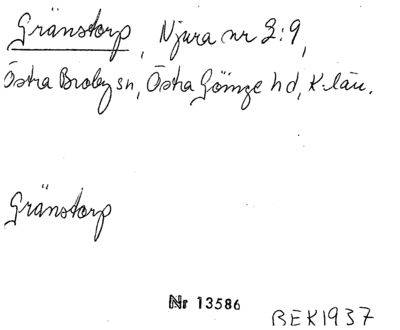 Gränstorp, Njura nr 2:9,
Östra Broby sn, Östra Göinge hd, K-län.
Gränstorp
Nr 13586
BEK1937